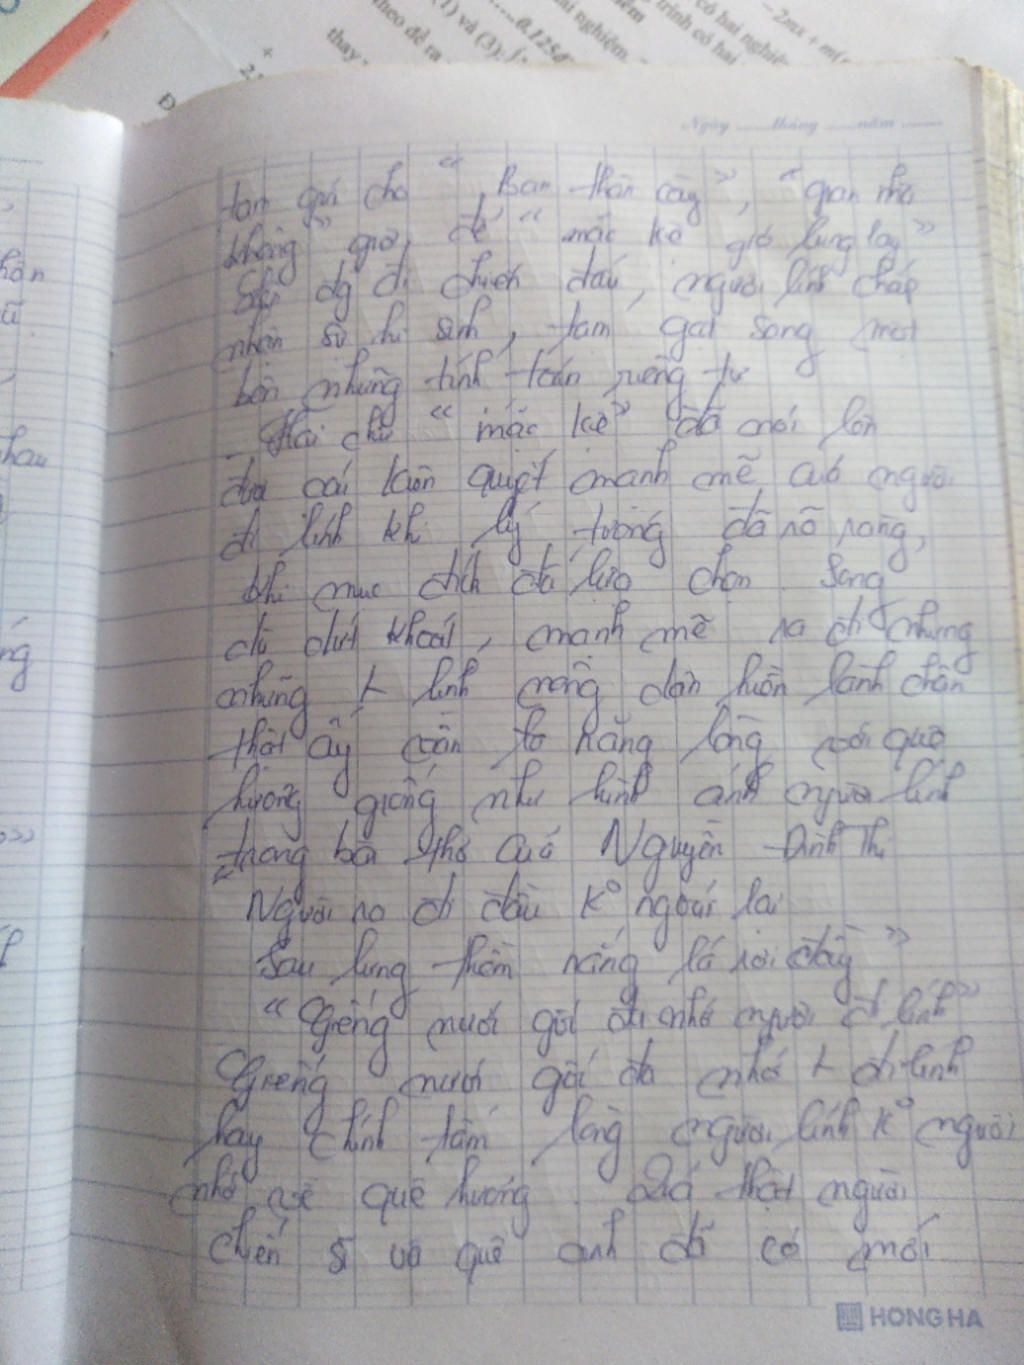 thay
theo đề ra
(1) và (3),
0,125đ
hai nghiệm.
trình có hai
có hai nghiệm
- 2mx + m(
Ngày ......tháng ......năm ......
tạm gửi cho " Bạn thân cày", " gian nhà
không" giờ, để " mặc kệ gió lung lay"
để đi chiến đấu, người lính chấp
nhận sự hi sinh, tạm gạt sang một
bên những tính toán riêng tư
Hai chữ " mặc kệ" đã nói lên
được cái kiên quyết mạnh mẽ của người
đi lính khi lý tưởng đã rõ ràng,
khi mục đích đã lựa chọn. Song
dù dứt khoát, mạnh mẽ ra đi nhưng
những lính nông dân hiền lành chân
thật ấy vẫn nặng lòng với quê
hương giống như hình ảnh người lính
trong bài thơ của Nguyễn Đình Thi
" Người ra đi đầu k° ngoái lại
Sau lưng thềm nắng lá rơi đầy"
" Giếng nước gốc đa nhớ người đi lính"
Giếng nước gốc đa nhớ đi lính
hay chính tấm lòng người lính k° nguôi
nhớ về quê hương. Quả thật người
chiến sĩ và quê anh đã có mối
HONG HA